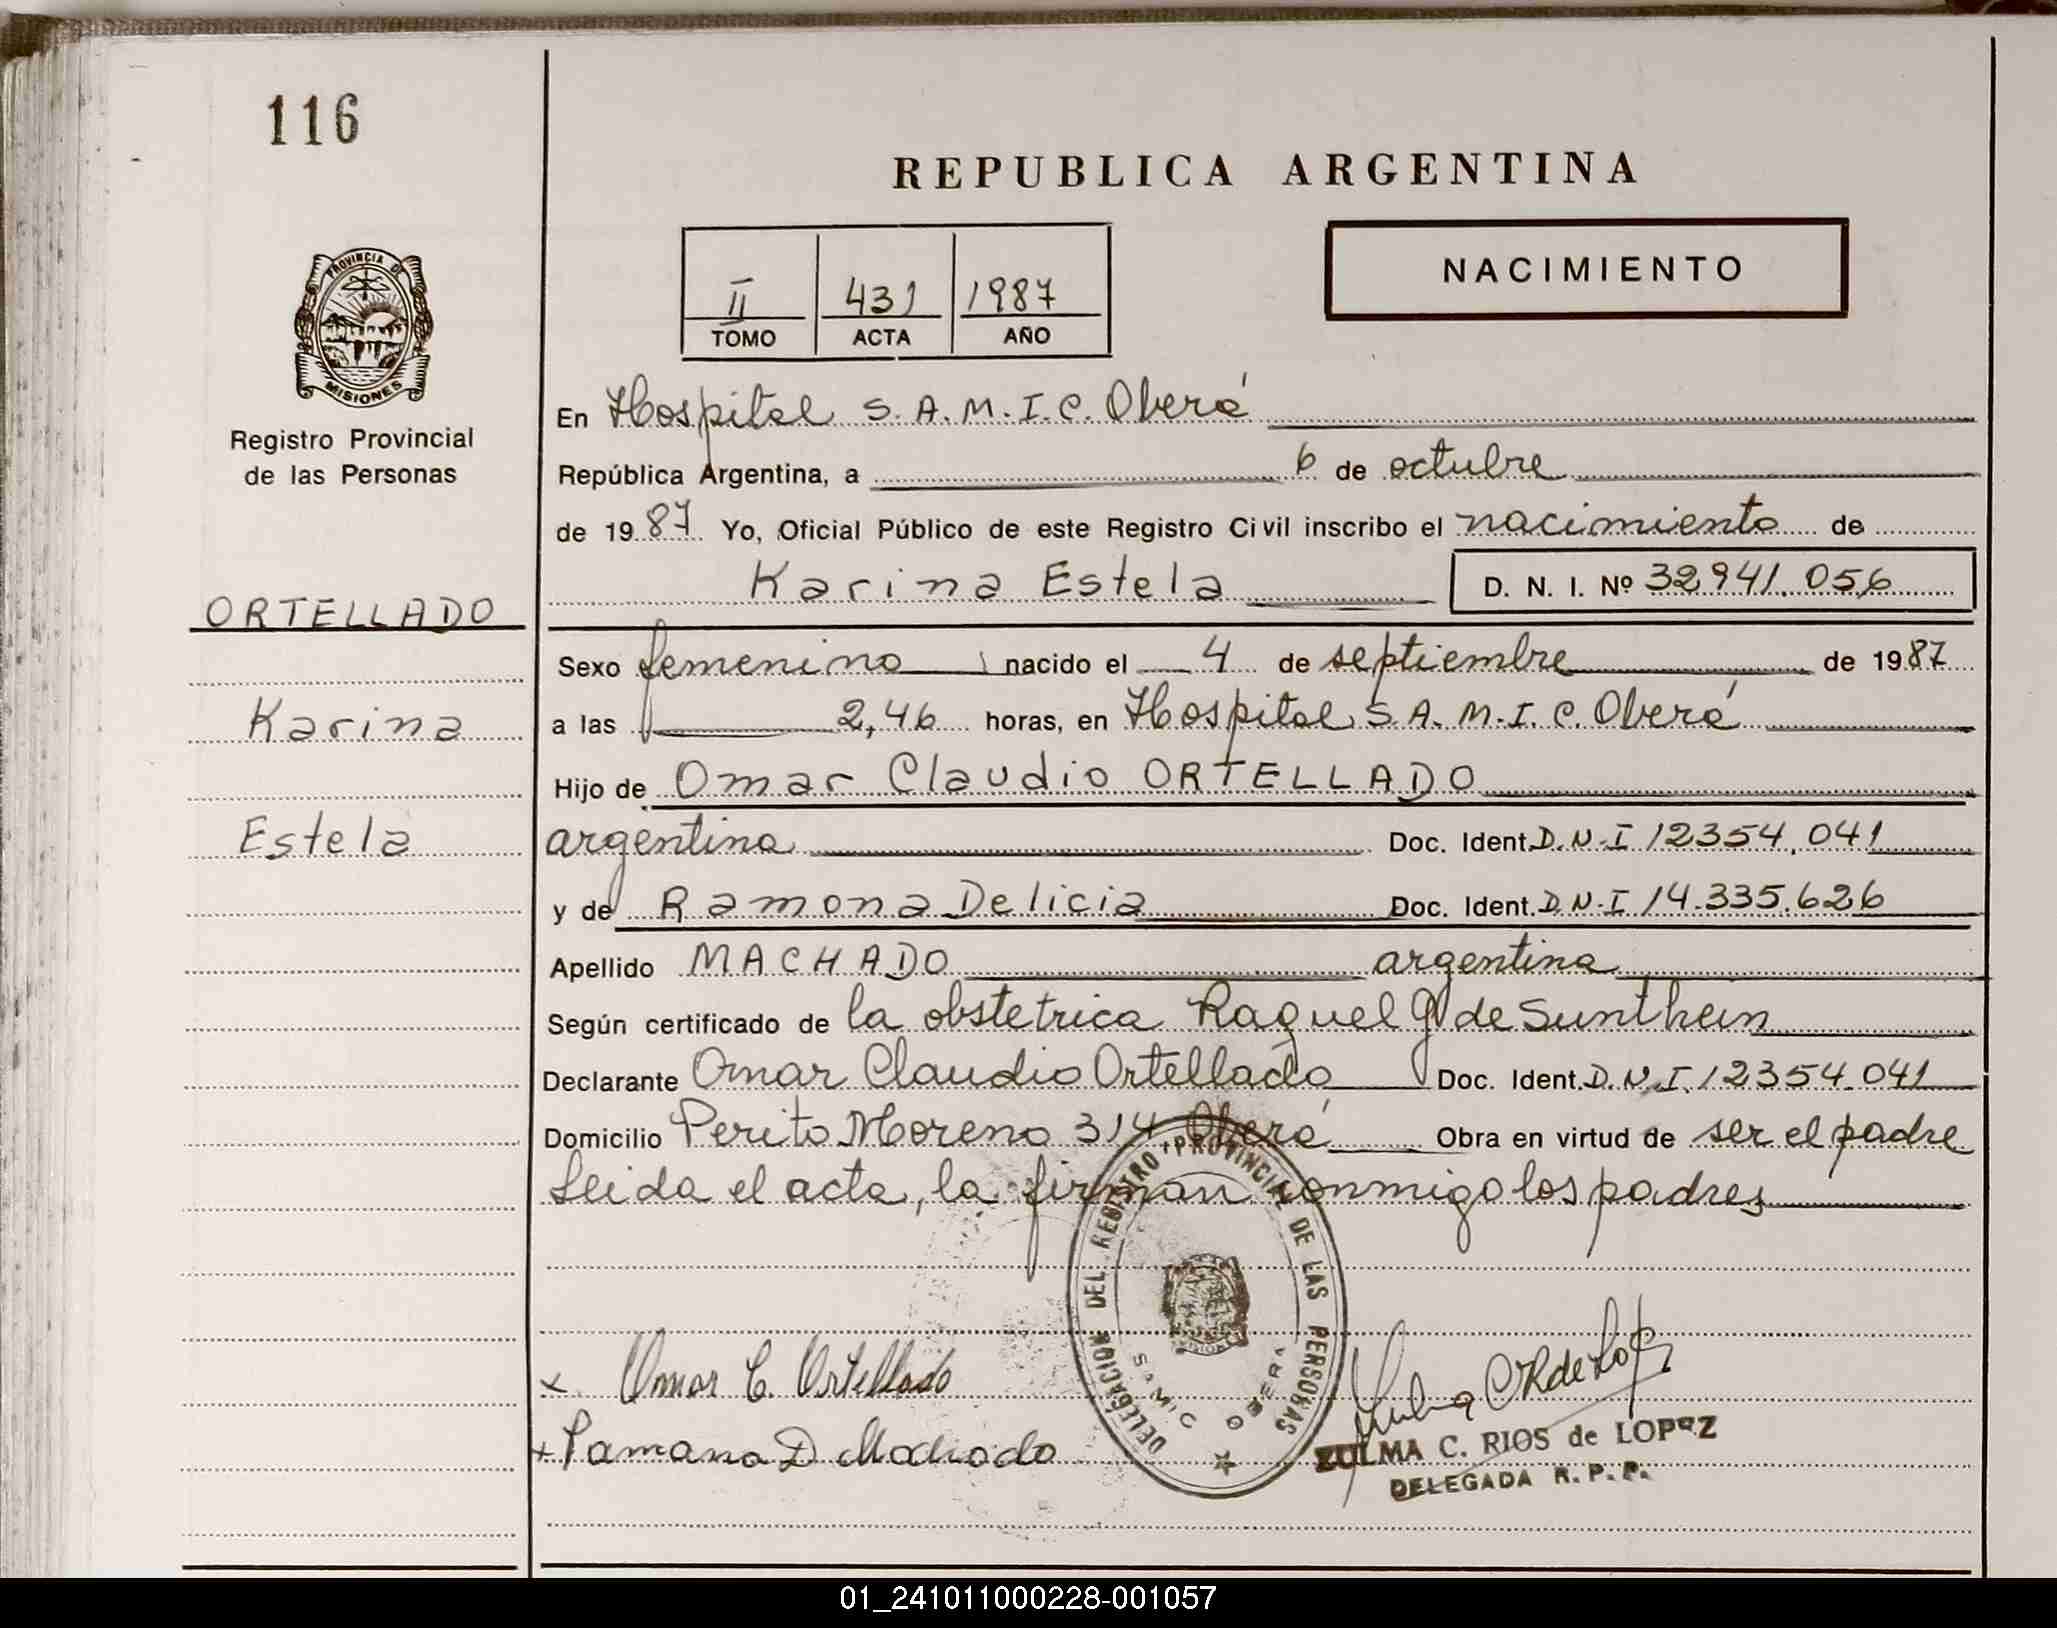 116
REPUBLICA ARGENTINA
II 431 1987
TOMO ACTA AÑO
NACIMIENTO
PROVINCIA DE
MISIONES
Registro Provincial
de las Personas
En Hospital S.A.M.I.C. Oberá
República Argentina, a 6 de octubre
de 1987 Yo, Oficial Público de este Registro Civil inscribo el nacimiento de
Karina Estela D. N. I. Nº 32941.056
ORTELLADO
Sexo femenino nacido el 4 de septiembre de 1987
Karina
a las 2,46 horas, en Hospital S.A.M.I.C. Oberá
Hijo de Omar Claudio ORTELLADO
Estela
argentina Doc. Ident. D.N.I 12354.041
y de Ramona Delicia Doc. Ident. D.N.I 14.335.626
Apellido MACHADO argentina
Según certificado de la obstetrica Raquel G de Sunthein
Declarante Omar Claudio Ortellado Doc. Ident. D.N.I. 12354.041
Domicilio Perito Moreno 314 Oberá Obra en virtud de ser el padre
Leida el acta, la firman conmigo los padres
DELEGACION DEL REGISTRO PROVINCIAL DE LAS PERSONAS
SAMIC OBERA
x Omar C. Ortellado
+ Ramona D Machado
ZULMA C. RIOS de LOPEZ
DELEGADA R.P.P.
01_241011000228-001057